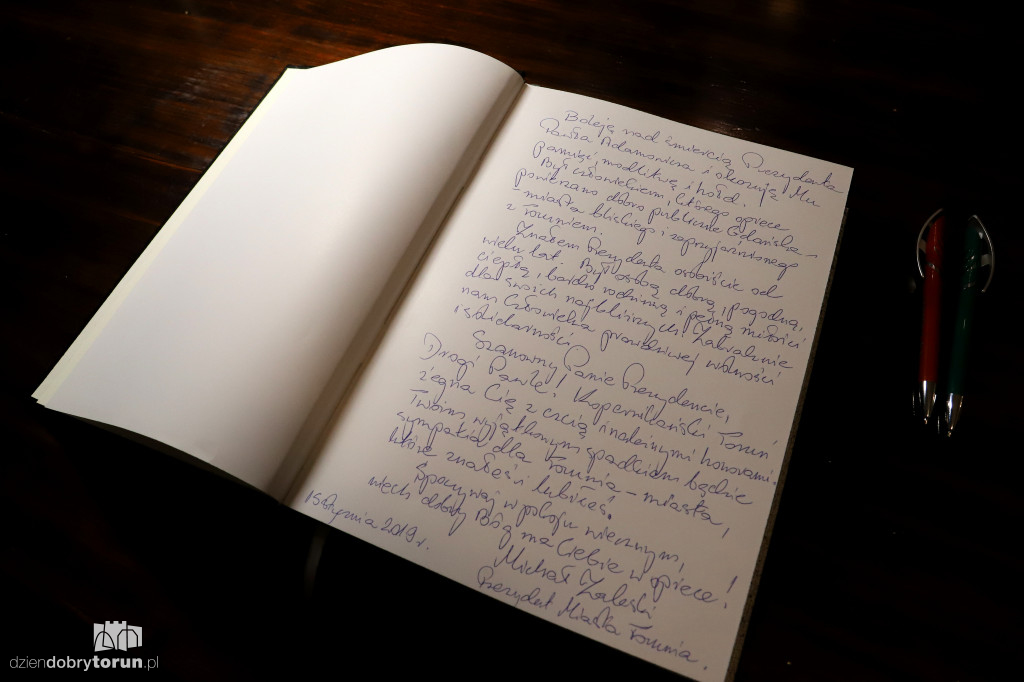 Boleję nad śmiercią Prezydenta
Pawła Adamowicza i okazuję Mu
pamięć, modlitwę i hołd.
Był człowiekiem, którego opiece
powierzano dobro publiczne Gdańska –
– miasta bliskiego i zaprzyjaźnionego
z Toruniem.
Znałem Prezydenta osobiście od
wielu lat. Był osobą dobrą, pogodną,
ciepłą, bardzo rodzinną i pełną miłości
dla swoich najbliższych. Zabraknie
nam Człowieka prawdziwej wolności
i solidarności
Szanowny Panie Prezydencie,
Drogi Pawle! Kopernikański Toruń
żegna Cię z czcią i należnymi honorami.
Twoim wyjątkowym spadkiem będzie
sympatia dla Torunia – miasta,
które znałeś i lubiłeś.
Spoczywaj w pokoju wiecznym,
niech dobry Bóg ma Ciebie w opiece!
Michał Zaleski
Prezydent Miasta Torunia.
stycznia 2019 r.
dziendobrytorun.pl